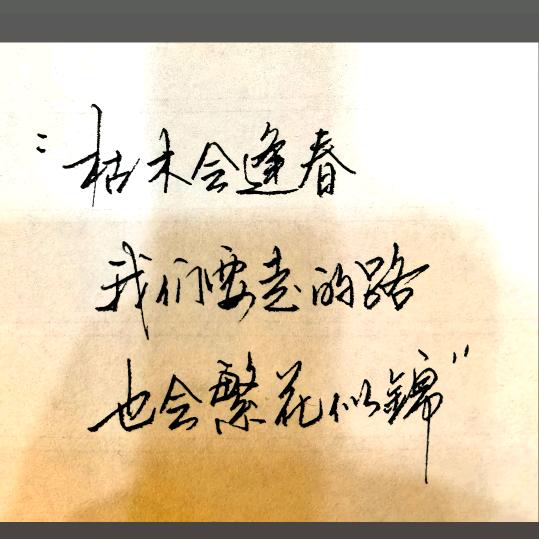 “枯木会逢春
我们要走的路
也会繁花似锦”